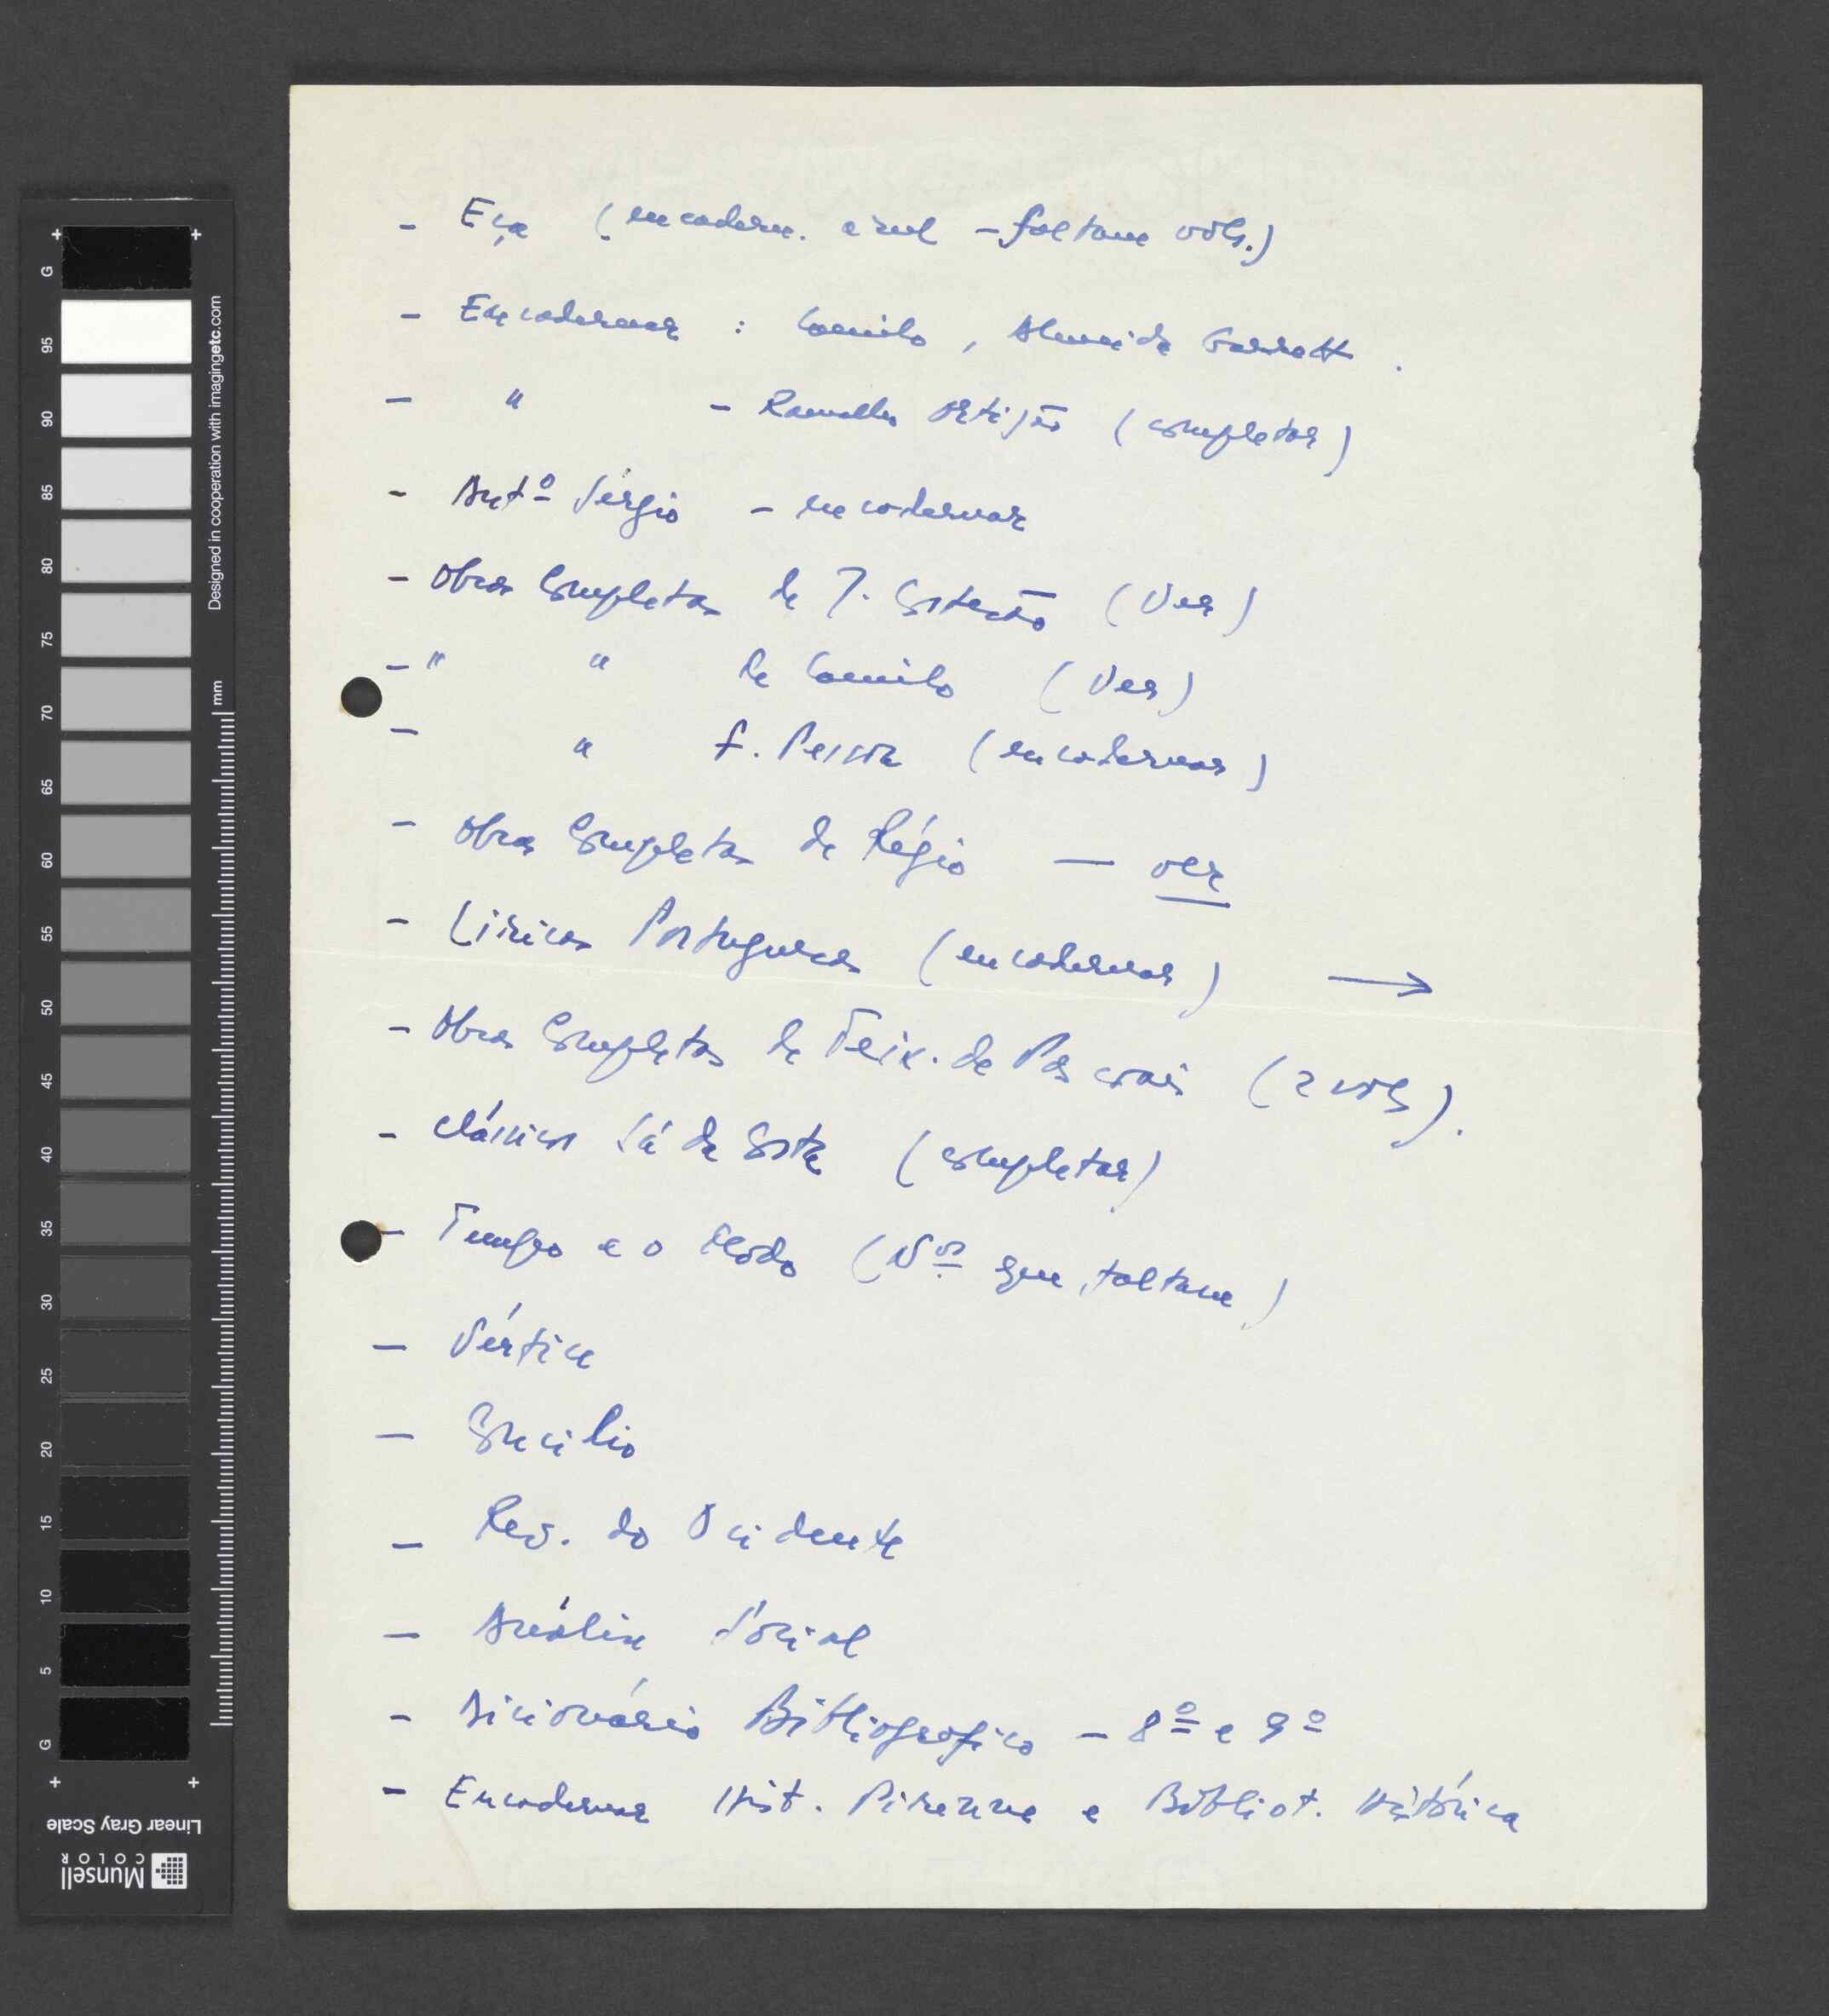 - Eça (encadern. azul - faltam vols.)
- Encadernar : Camilo, Almeida Garrett.
- " - Ramalho Ortigão (completar)
- Antº Sérgio - encadernar
- Obras Completas de J. Cortesão (Ver)
- " " de Camilo (Ver)
- " F. Pessoa (encadernar)
- Obras Completas de Régio — ver
- Líricas Portuguesas (encadernar) →
- Obras Completas de Teix. de Pascoais (2 vols).
- Clássicos Sá da Costa (completar)
- Tempo e o Modo (Nos que faltam)
- Vértice
- Concílio
- Rev. do Ocidente
- Análise Social
- Dicionário Bibliográfico - 8º e 9º
- Encadernar Hist. Pirenne e Bibliot. Histórica
+ +
G 95 90 85 80 75 70 65 60 55 50 45 40 35 30 25 20 15 10 5 G
Designed in cooperation with imagingetc.com
mm
+ +
Linear Gray Scale
Munsell
COLOR